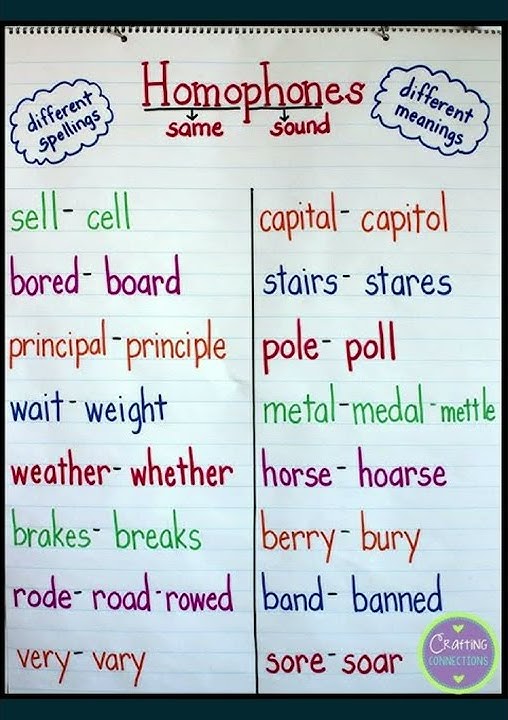 Homophones
different
spellings
same sound
different
meanings
sell - cell
bored - board
principal - principle
wait - weight
weather - whether
brakes - breaks
rode - road - rowed
very - vary
capital - capitol
stairs - stares
pole - poll
metal - medal - mettle
horse - hoarse
berry - bury
band - banned
sore - soar
Crafting
CONNECTIONS